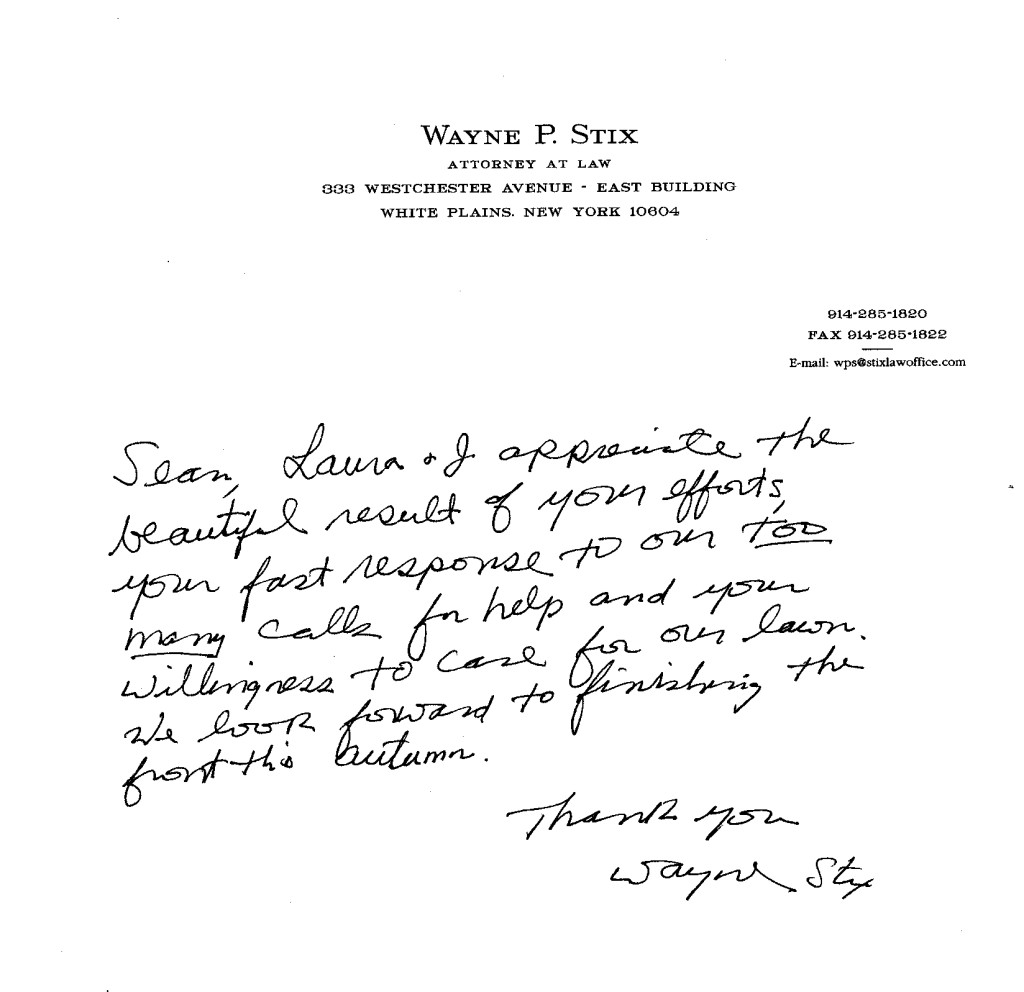 WAYNE P. STIX
ATTORNEY AT LAW
333 WESTCHESTER AVENUE - EAST BUILDING
WHITE PLAINS, NEW YORK 10604
914-285-1820
FAX 914-285-1822
E-mail: wps@stixlawoffice.com
Sean, Laura & I appreciate the
beautiful result of your efforts,
your fast response to our too
many calls for help and your
willingness to care for our lawn.
We look forward to finishing the
front this autumn.
Thank you
Wayne Stix